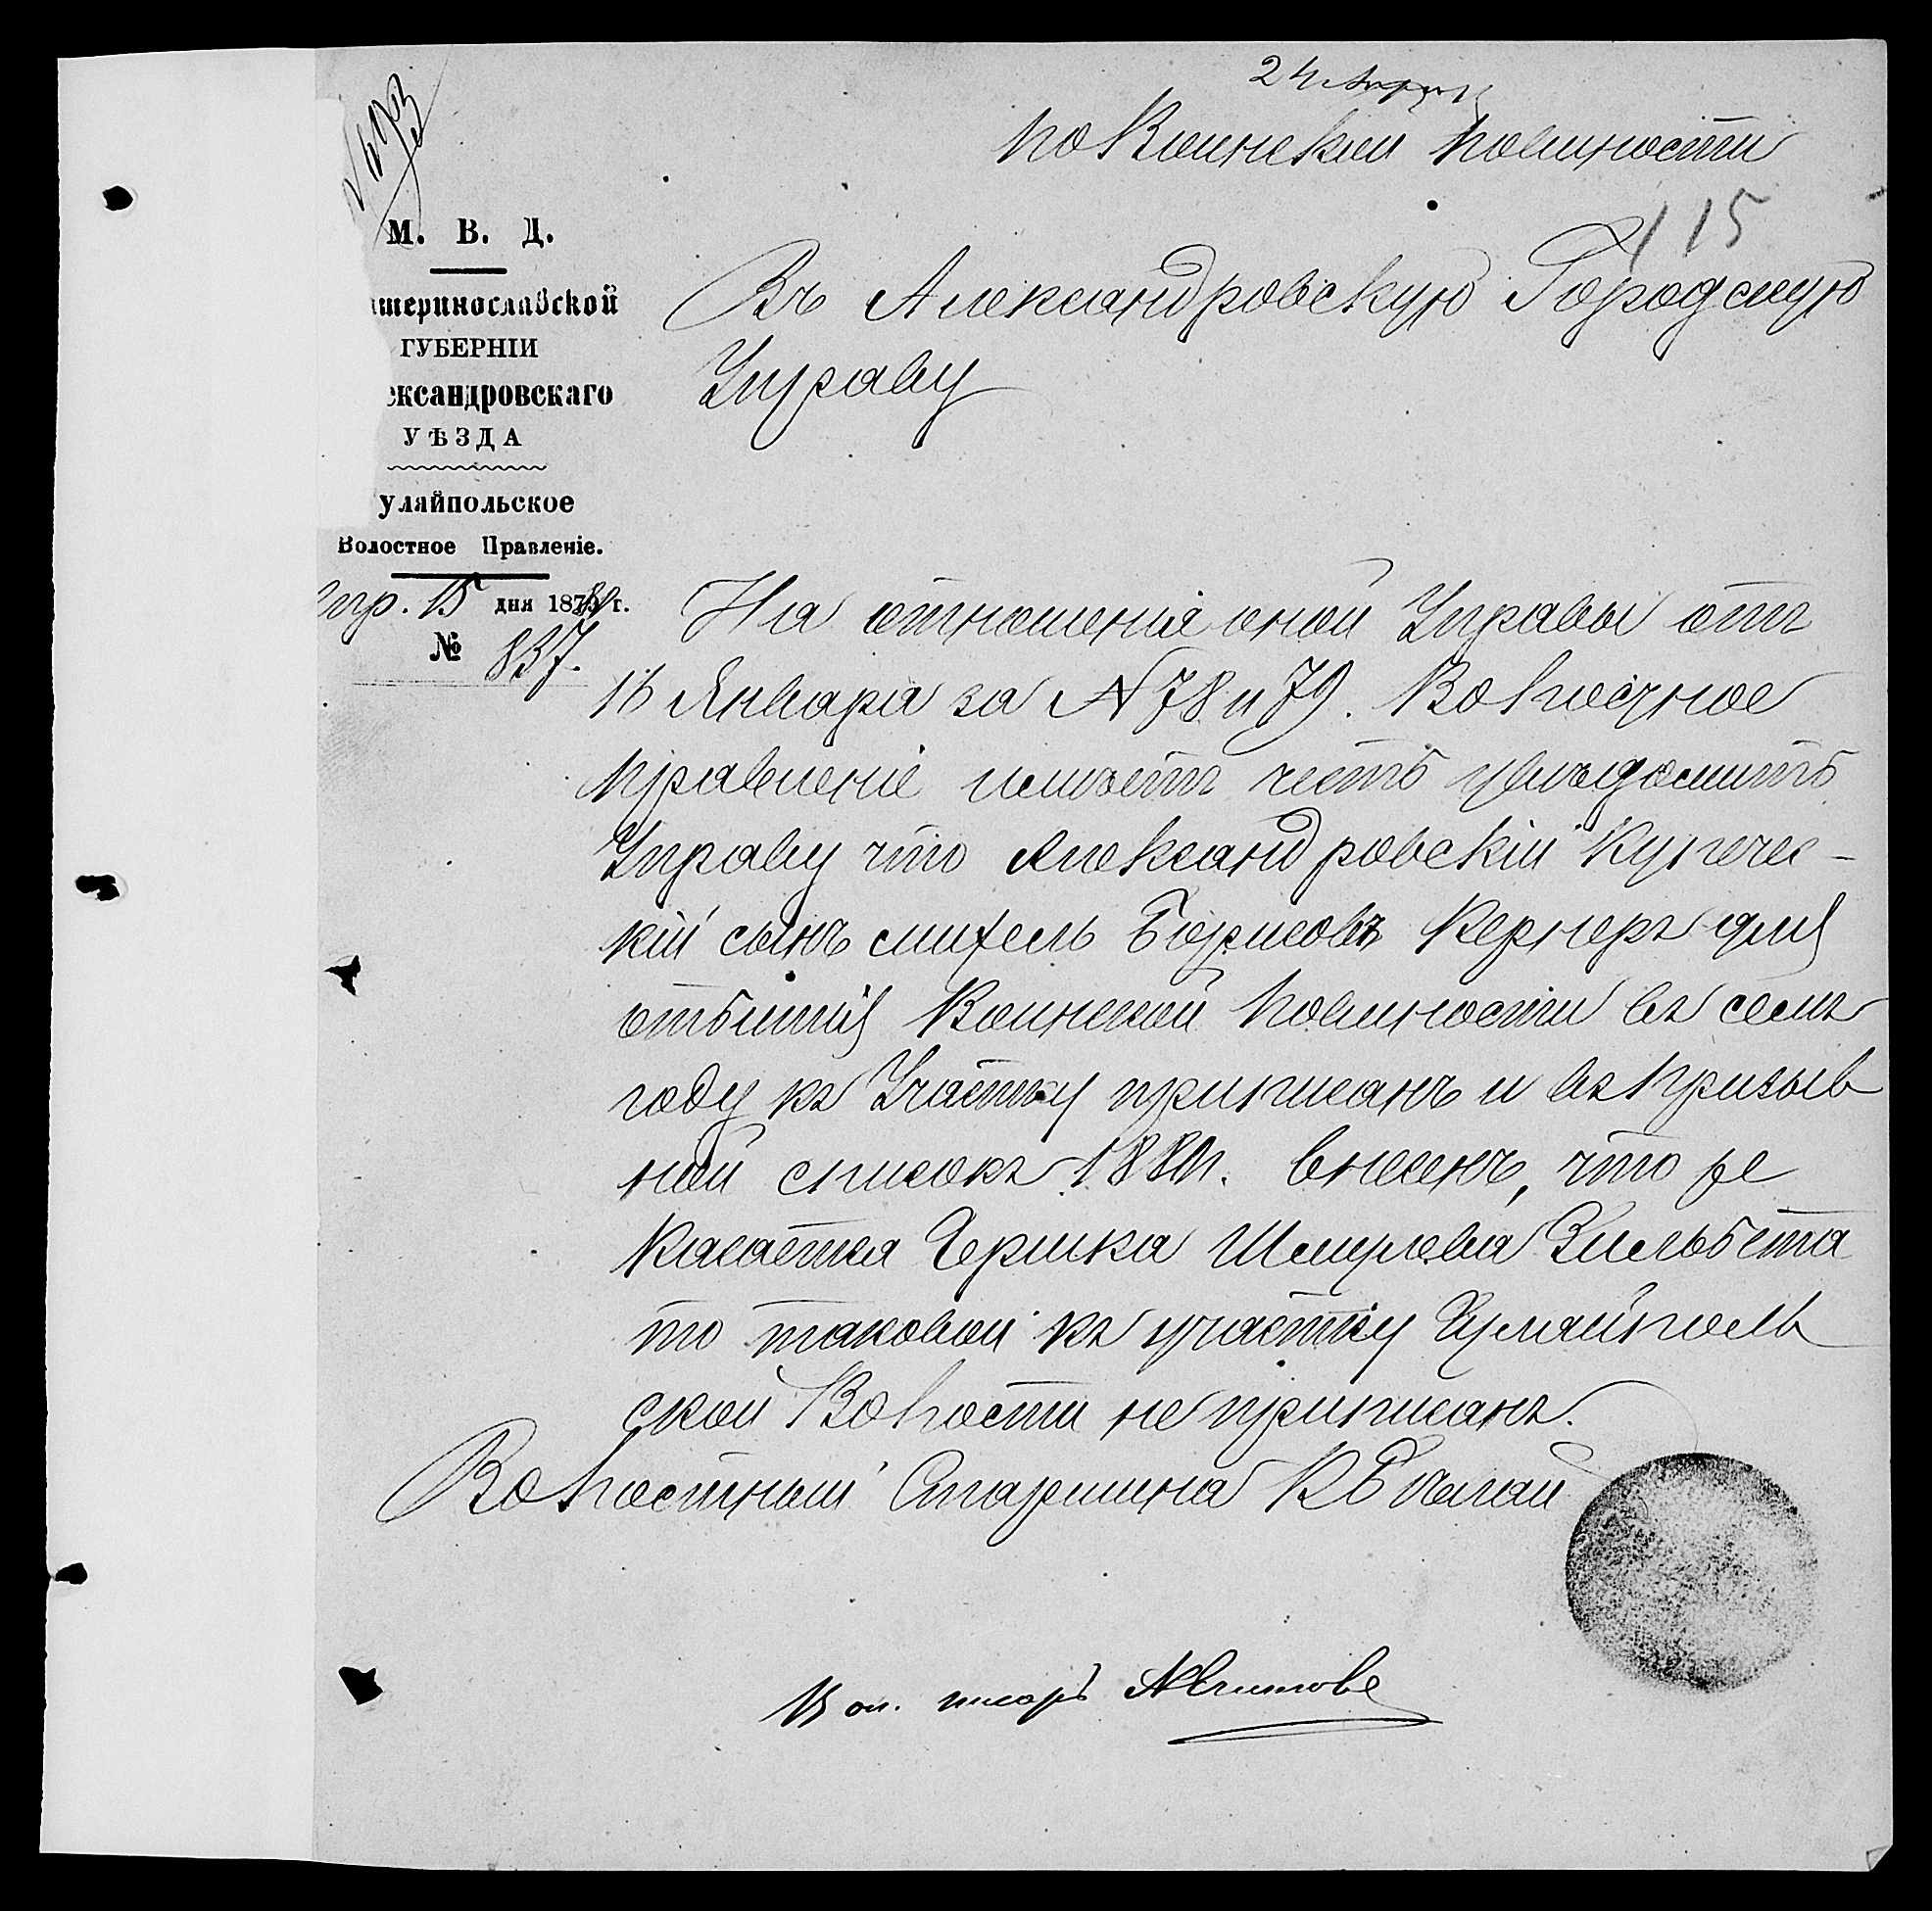 24 Апрѣля
по Воинской повинности
115
М. В. Д.
атеринославской
ГУБЕРНІИ
ександровскаго
УѢЗДА
уляйпольское
Волостное Правленіе.
Апр. 15 дня 1880 г.
№ 837.
Въ Александровскую Городскую
Управу
На отношенія оной Управы отъ
16 Января за № 78 и 79. Волостное
правленіе имѣетъ честь увѣдомить
Управу что Александровскій Купечес-
кій сынъ Борисовъ Кернеръ для
отбытія Воинской повинности въ семъ
году къ Участку приписанъ и въ призыв
ной списокъ 1880 г. внесенъ, что же
касается Гершка Шмулева Зильбета
то таковой къ участку Гуляйполь
ской Волости не приписанъ.
Волостный Старшина
Вол. писарь